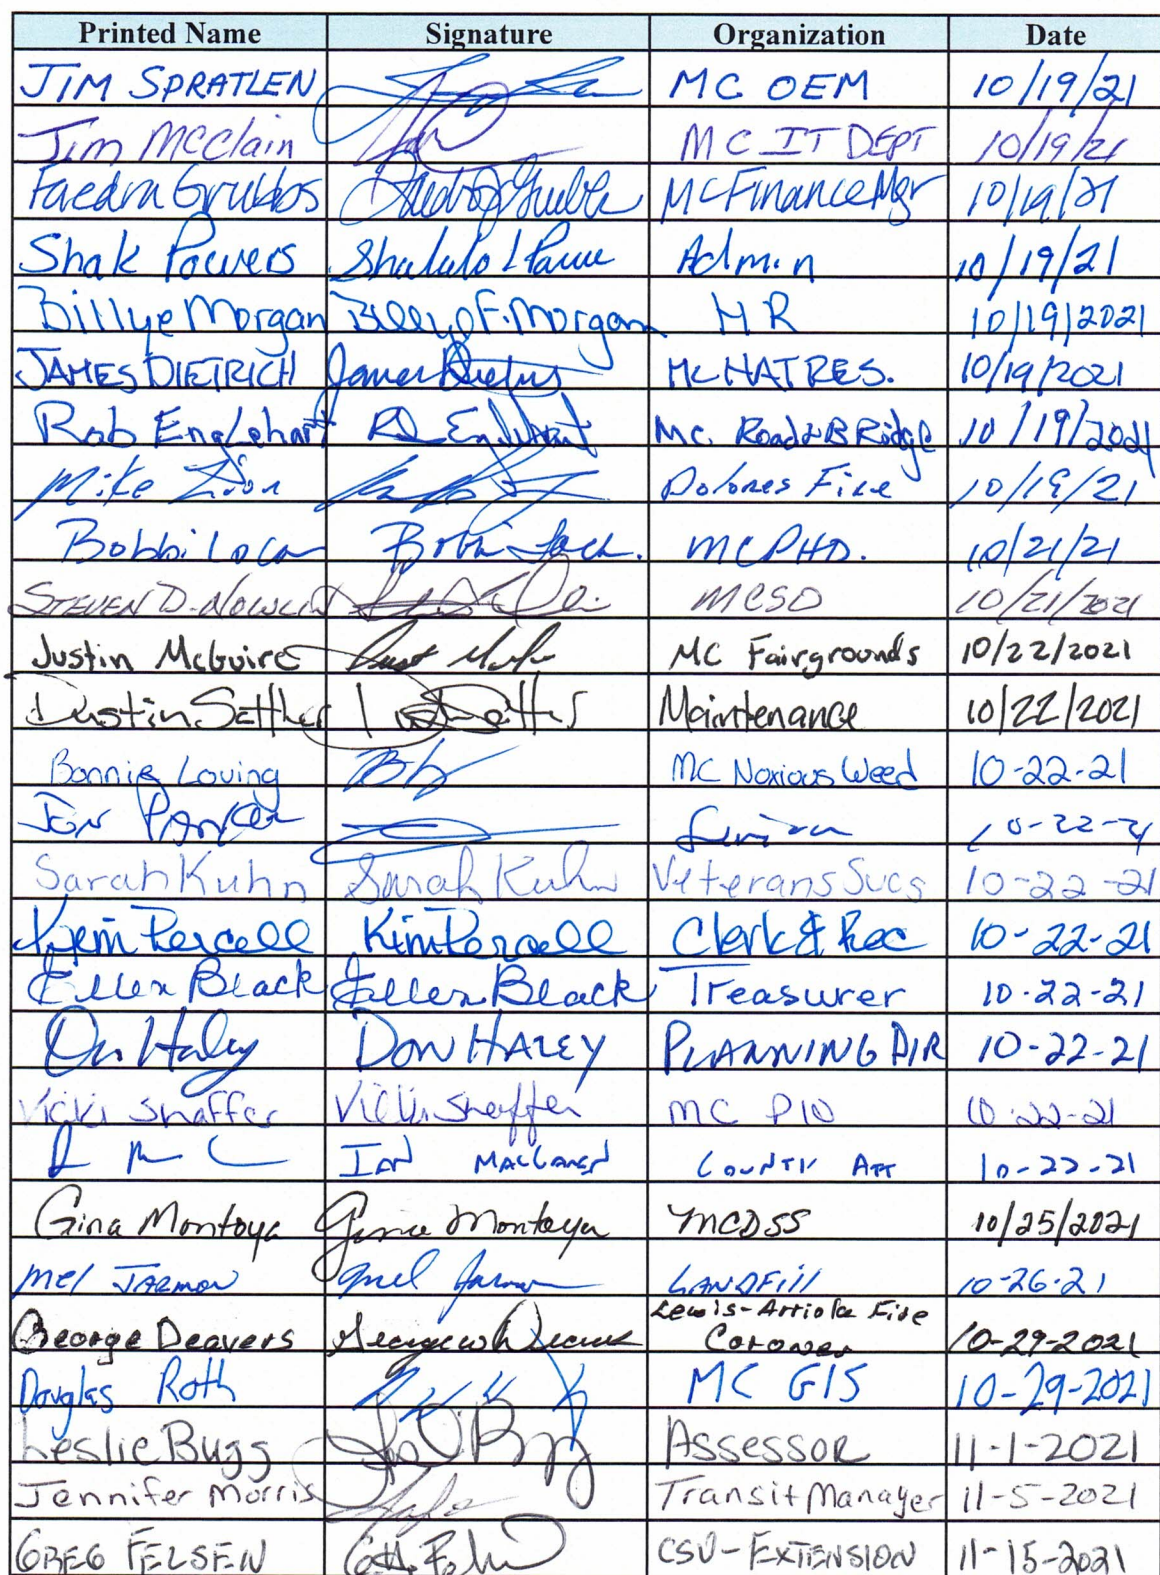 Printed Name Signature Organization Date
JIM SPRATLEN MC OEM 10/19/21
Jim McClain MC IT DEPT 10/19/21
Faedra Grubbs MC Finance Mgr 10/19/21
Shak Powers Admin 10/19/21
Billye Morgan Billye F. Morgan HR 10/19/2021
JAMES DIETRICH James Dietrich MC NAT RES. 10/19/2021
Rob Englehart Rob Englehart MC. Road & Bridge 10/19/2021
Mike Zion Dolores Fire 10/19/21
Bobbi Lock Bobbi Lock. MCPHD. 10/21/21
STEVEN D. NOWLIN MCSO 10/21/2021
Justin McGuire MC Fairgrounds 10/22/2021
Dustin Sattler Maintenance 10/22/2021
Bonnie Loving MC Noxious Weed 10-22-21
Jon Parker 10-22-21
Sarah Kuhn Sarah Kuhn Veterans Svcs 10-22-21
Kim Percell Kim Percell Clerk & Rec 10-22-21
Ellen Black Ellen Black Treasurer 10-22-21
Don Haley DON HALEY PLANNING DIR 10-22-21
Vicki Shaffer Vicki Shaffer MC PIO 10-22-21
IAN MACLAREN COUNTY ATT 10-22-21
Gina Montoya Gina Montoya MCDSS 10/25/2021
Mel JARMON Mel Jarmon LANDFill 10-26-21
Lewis-Arriola Fire
George Deavers George W Deavers Coroner 10-29-2021
Douglas Roth MC GIS 10-29-2021
Leslie Bugg ASSESSOR 11-1-2021
Jennifer Morris Transit Manager 11-5-2021
GREG FELSEN CSU-EXTENSION 11-15-2021